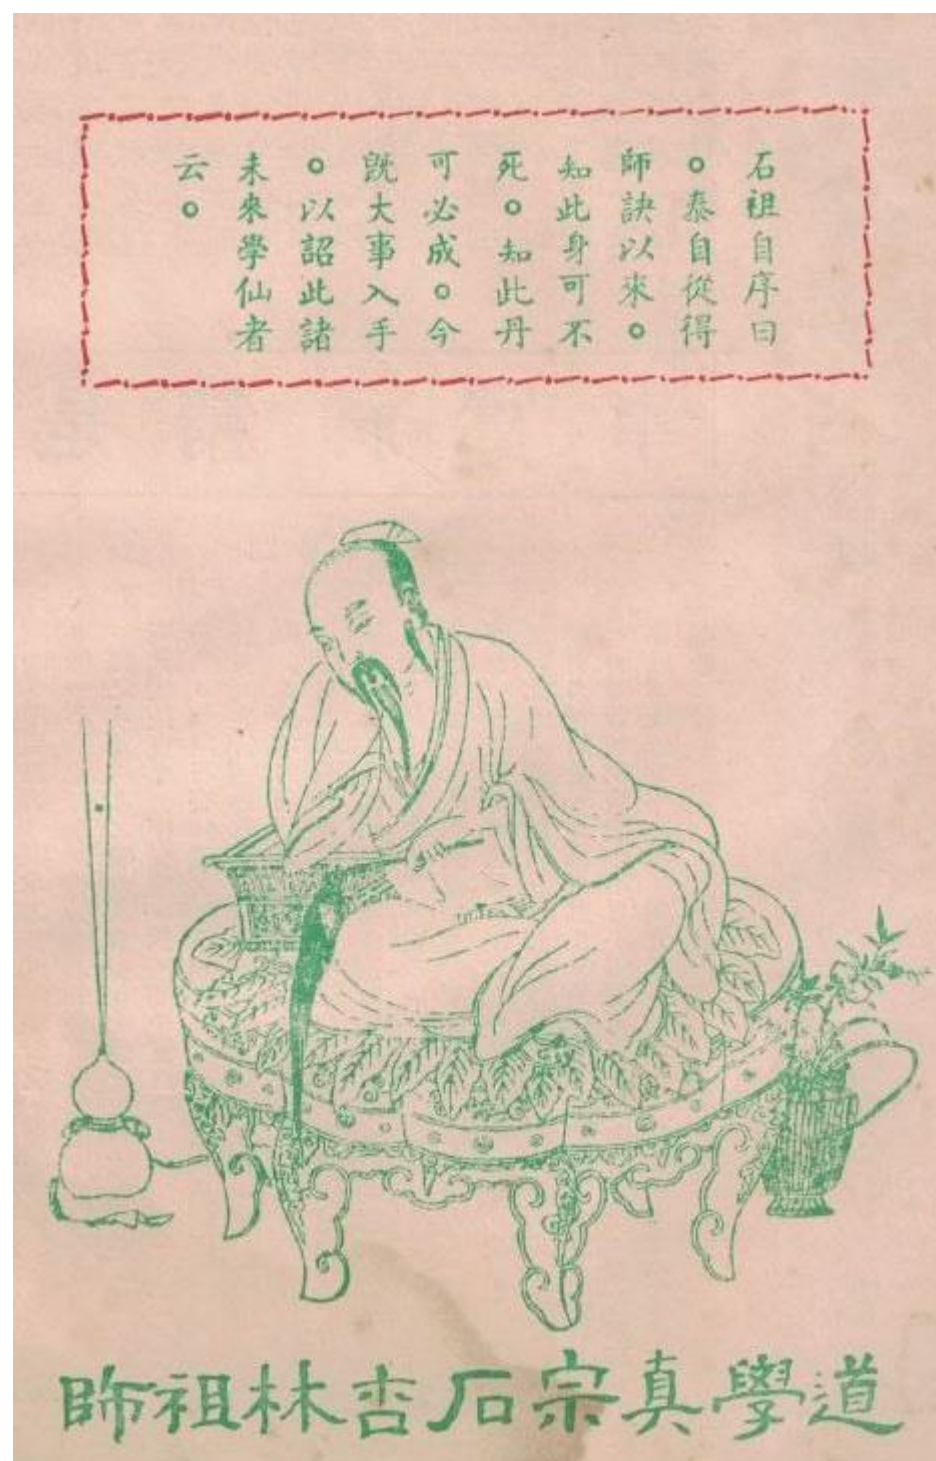 石祖自序曰
。泰自從得
師訣以來。
知此身可不
死。知此丹
可必成。今
旣大事入手
。以詔此諸
未來學仙者
云。
道學真宗石杏林祖師